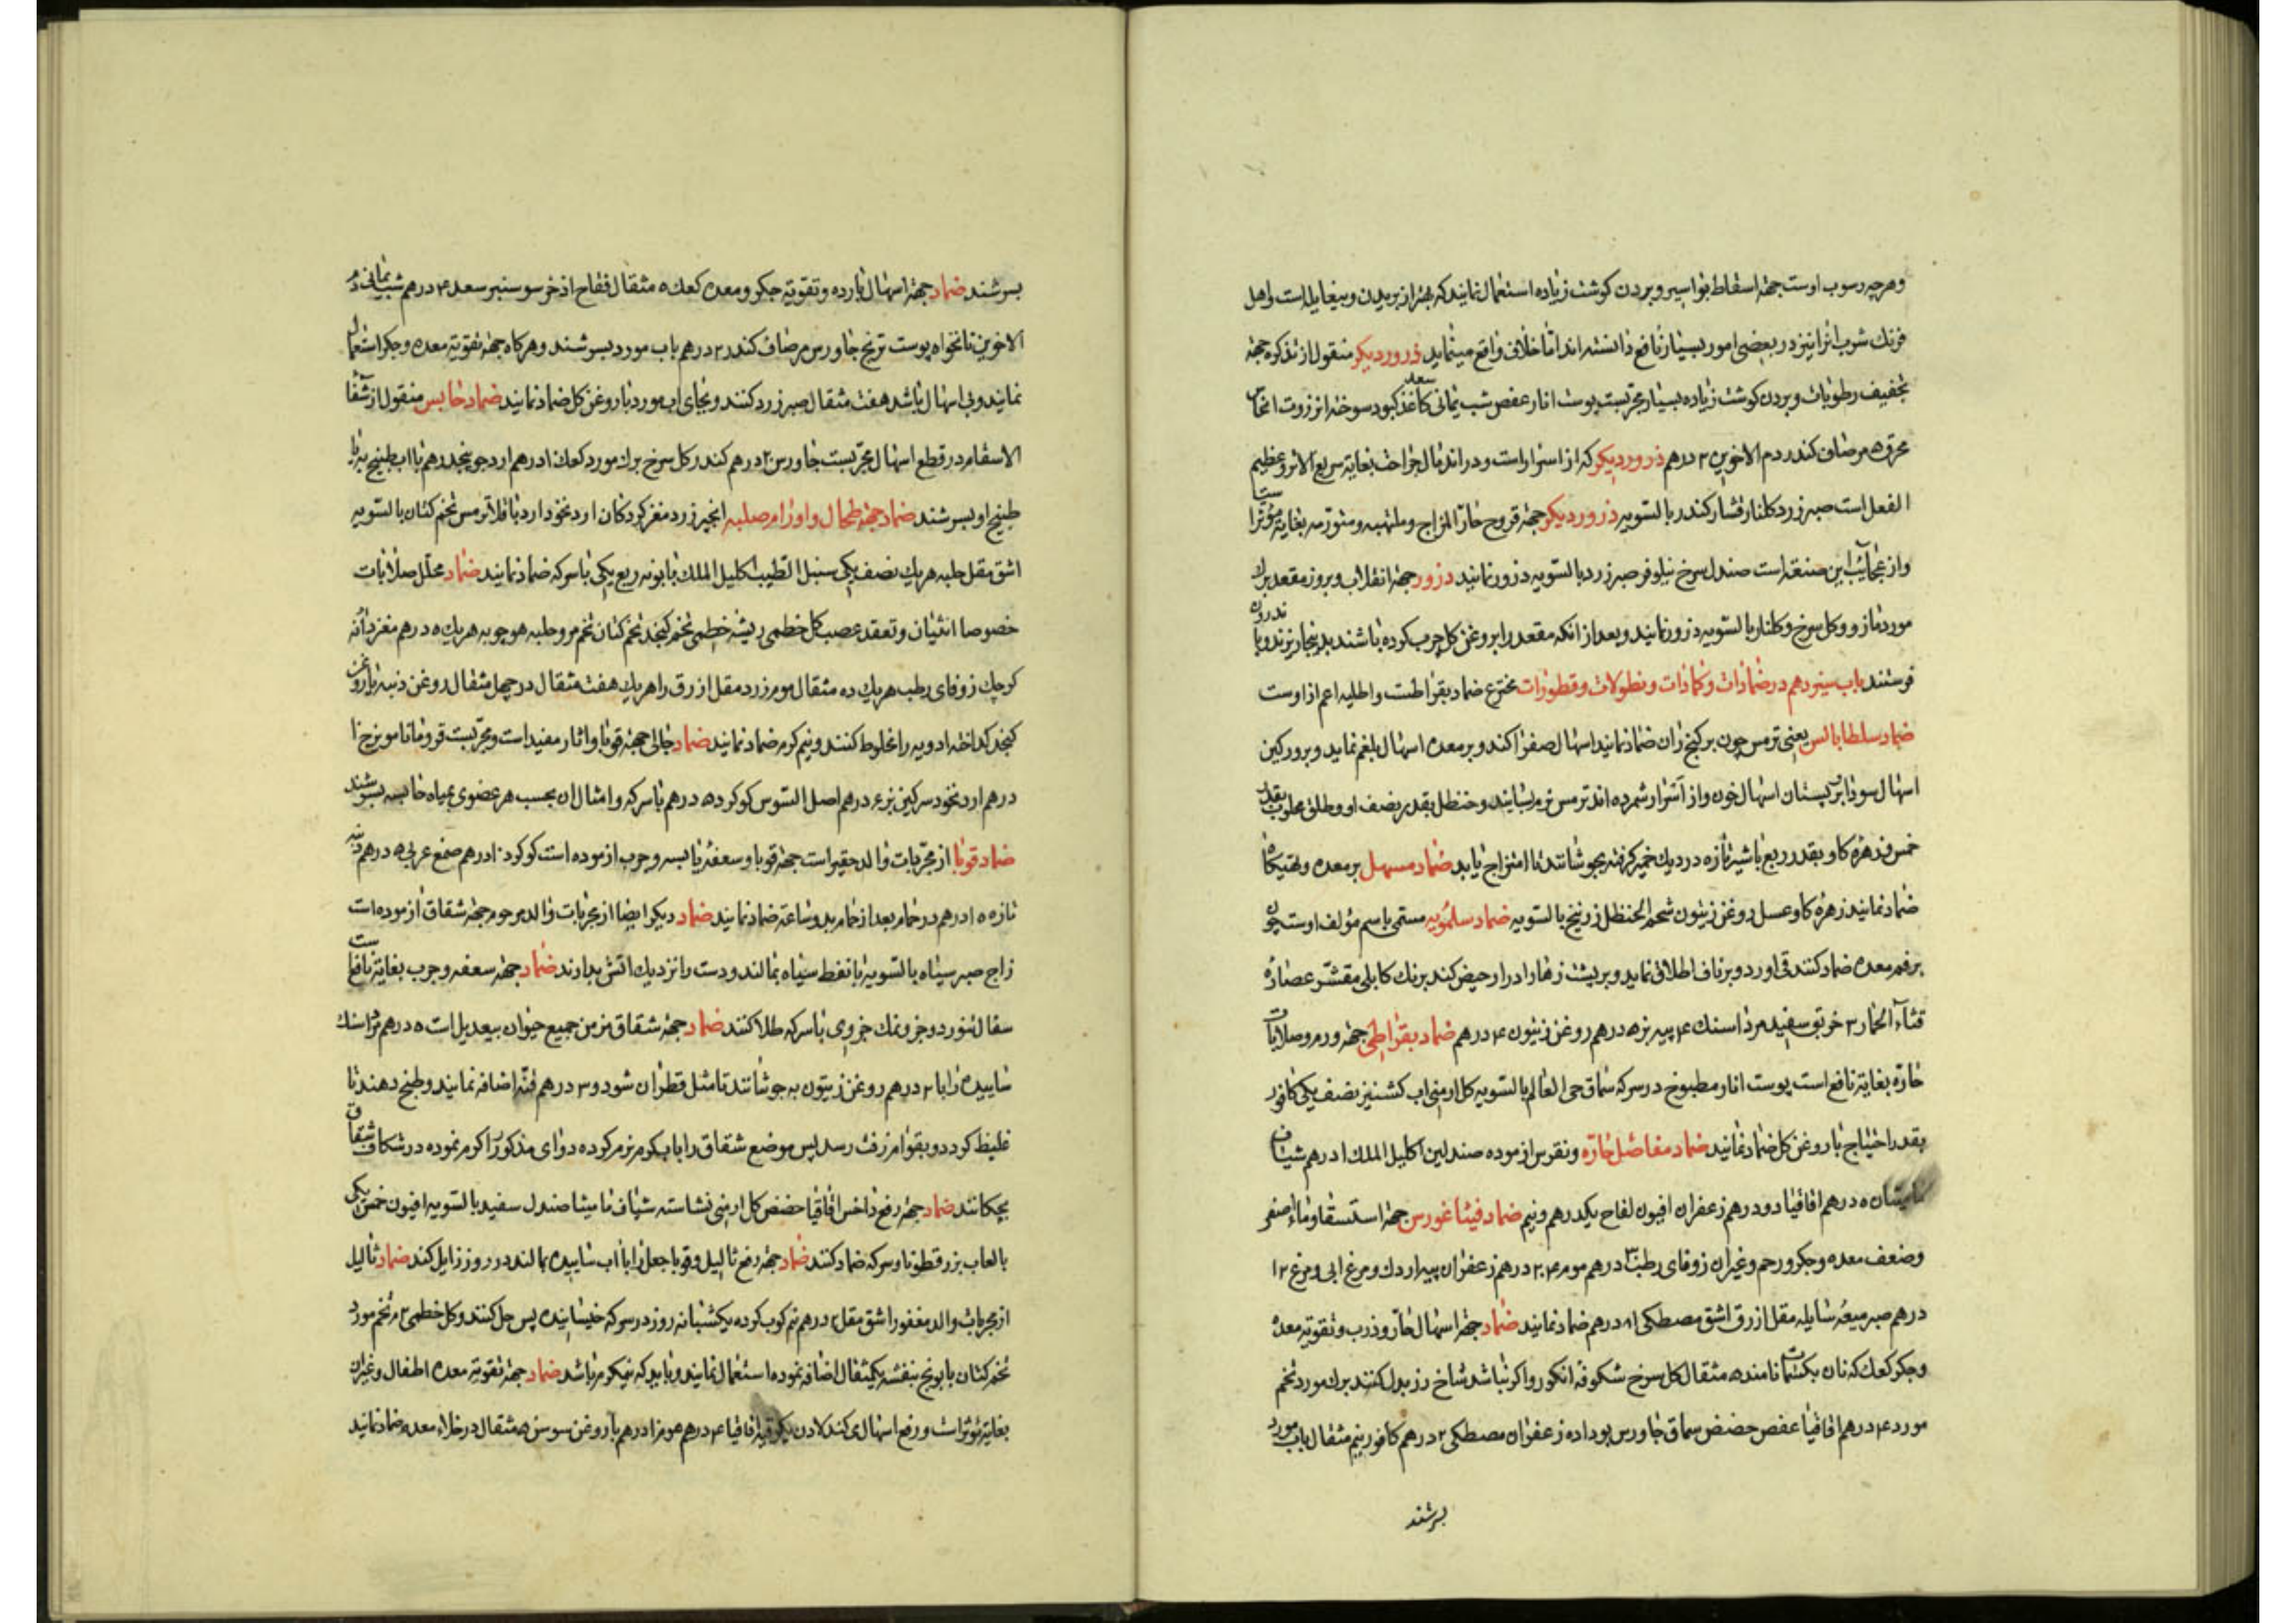 وهرچه رسوب اوست جهة اسقاط بواسیر و بردن کوشت زیاده استعمال نمایند که بهتر از بریدن و بیغایله است و اهل
فرنك شرب انرا نیز در بعضی امور بسیار نافع دانسته اند اما خلاف واقع مینماید ذرور دیکر منقول از تذکره جهة
تجفیف رطوبات و بردن کوشت زیاده بسیار مجربست پوست انار عفص شب یمانی سعد کاغذ کبود سوخته انزروت انحاس
محرق ۵ مرصاف کندر دم الاخوین ۲ درهم ذرور دیکر که از اسرار است و در اندمال جراحت بغایة سریع الاثر و عظیم
الفعل است صبر زرد کلنار قشار کندر بالسویه ذرور دیکر جهة قروح حارّ المزاج و ملتهبه و متورمه بغایة مؤثر است
و از عجائب این صنعة است صندل سرخ نیلوفر صبر زرد بالسویه ذرور نمایند ذرور جهة انقلاب و بروز مقعد برك
مورد مازو و کل سرخ و کلنار بالسویه ذرور نمایند و بعد از انکه مقعد را بروغن کل چرب کرده باشند بدینجار بزند و باندرون
فرستند باب سیزدهم در ضمادات و کمادات و نطولات و قطورات مخترع ضماد بقراطست و اطلیه اعم از اوست
ضماد سلطابالس یعنی ترمس چون بر کنج ران ضماد نمایند اسهال صفرا کند و بر معده اسهال بلغم نماید و بر ورکین
اسهال سودا بر پستان اسهال خون و از اسرار شمرده اند ترمس نرم بسایند و حنظل بقدر نصف او و طلق محلوب بقدر
خمس و زهره کاو بقدر ربع باشیر تازه در دیك خمیر کرفته بجوشانند تا امتزاج یابد ضماد مسهل بر معده و تهیکاه
ضماد نمایند زهره کاو عسل روغن زیتون شحم الحنظل زرنیخ بالسویه ضماد سلمویه مسمی باسم مؤلف اوست چون
بر فم معده ضماد کنند قی اورد و بر ناف اطلاق نماید و بر پشت زهار ادرار حیض کند برنك کابلی مقشر عصاره
قثاء الحمار ۳ خربق سفید مرداسنك ۴ پیه بز ۵ درهم روغن زیتون ۴۰ درهم ضماد بقراطی جهة ورم و صلابات
حارّه بغایة نافع است پوست انار مطبوخ در سرکه سماق حی العالم بالسویه کل ارمنی اب کشنیز نصف یکی کافور
بقدر احتیاج با روغن کل ضماد نمایند ضماد مفاصل حارّه و نقرس ازموده صندلین اکلیل الملك ۱ درهم شیاف
مامیثان ۵ درهم اقاقیا دو درهم زعفران افیون لفاح یکدرهم و نیم ضماد فیثاغورس جهة استسقا و ماء اصفر
و ضعف معده و جکر و رحم و غیران زوفای رطب درهم موم ۲۰ درهم زعفران پیه اردك و مرغ ابی و مرغ ۱۲
درهم صبر میعه سایله مقل ازرق اشق مصطکی ۸ درهم ضماد نمایند ضماد جهة اسهال حارّ و ذرب و تقویة معده
و جکر کعك که نان بکسمات نامند ۵ مثقال کل سرخ شکوفه انکور و اکر نباشد شاخ رز بدل کنند برك مورد تخم
مورد ۴ درهم اقاقیا عفص حضض سماق جاورس بوداده زعفران مصطکی ۲ درهم کافور نیم مثقال باب مورد
بسرشند
بسرشند ضماد جهة اسهال بارده و تقویة جکر و معده کعك ۵ مثقال فقاح اذخر سوسنبر سعد ۴ درهم شب یمانی دم
الاخوین نانخواه پوست ترنج جاورس مرصاف کندر ۲ درهم باب مورد بسرشند و هرکاه جهة تقویة معده و جکر استعمال
نمایند و بی اسهال باشد هفت مثقال صبر زرد کنند و بجای اب مورد با روغن کل ضماد نمایند ضماد حابس منقول از شفا
الاسقام در قطع اسهال مجربست جاورس ۲ درهم کندر کل سرخ برك مورد کعك ۱ درهم ارد جو پنجدرهم با اب طبیخ به یا
طبیخ او بسرشند ضماد جهة طحال و اورام صلبه انجیر زرد مغز کردکان ارد نخود ارد باقلا ترمس تخم کتان بالسویه
اشق مقل حلبه هریك نصف یکی سنبل الطیب اکلیل الملك بابونه ربع یکی با سرکه ضماد نمایند ضماد محلل صلابات
خصوصا انثیان و تعقد عصب کل خطمی ریشه خطمی تخم کنجد تخم کتان تخم مرو حلبه هوچوبه هریك ۵ درهم مغز دانه
کوچك زوفای رطب هریك ده مثقال موم زرد مقل ازرق را هریك هفت مثقال در چهل مثقال روغن دنبه با روغن
کنجد کداخته ادویه را مخلوط کنند و نیم کرم ضماد نمایند ضماد جالی جهة قوبا و اثار مفید است و مجربست قردمانا مویزج ۱
درهم ارد نخود سرکین بز ۴ درهم اصل السوس کوکرد ۵ درهم با سرکه و امثال ان بحسب هر عضوی بمیاه حابسه بسرشند
ضماد قوبا از مجربات والد حقیر است جهة قوبا و سعفه یابسه و جرب ازموده است کوکرد ۱۰ درهم صمغ عربی ۵ درهم دنبه
تازه ۱۵ درهم در حمام بعد از حمام بدو ساعة ضماد نمایند ضماد دیکر ایضا از مجربات والد مرحوم جهة شقاق ازموده است
زاج صبر سیاه بالسویه با نفط سیاه بمالند و دست را نزدیك اتش بدارند ضماد جهة سعفه و جرب بغایة نافع است
سفال تنور دو جزو نمك جزوی با سرکه طلا کنند ضماد جهة شقاق مزمن جمیع حیوان بیعدیل است ۵ درهم مرداسنك
ساییده را با ۲۰ درهم روغن زیتون به جوشانند تا مثل قطران شود و ۳ درهم قنّه اضافه نمایند و طبخ دهند تا
غلیظ کردد و بقوام زفت رسد پس موضع شقاق را باب کرم نرم کرده دوای مذکور را کرم نموده در شکاف شقاق
بچکانند ضماد جهة رفع داخس اقاقیا حضض کل ارمنی نشاسته شیاف مامیثا صندل سفید بالسویه افیون خمس یکی
بالعاب بزرقطونا و سرکه ضماد کنند ضماد جهة رفع ثالیل و قوبا جعل را با اب ساییده بمالند در روز زایل کند ضماد ثالیل
از مجربات والد مغفور اشق مقل ۲ درهم نیم کوب کرده یکشبانه روز در سرکه خیسانیده پس حل کنند و کل خطمی ۲ م تخم مورد
تخم کتان بابونج بنفشه یکمثقال اضافه نموده استعمال نمایند و باید که نیکرم باشد ضماد جهة تقویة معده اطفال و غیران
بغایة مؤثر است و رفع اسهال کند لادن اقاقیا ۴ درهم موم ۱۰ درهم با روغن سوسن ۵ مثقال در خلاء معده ضماد نمایند